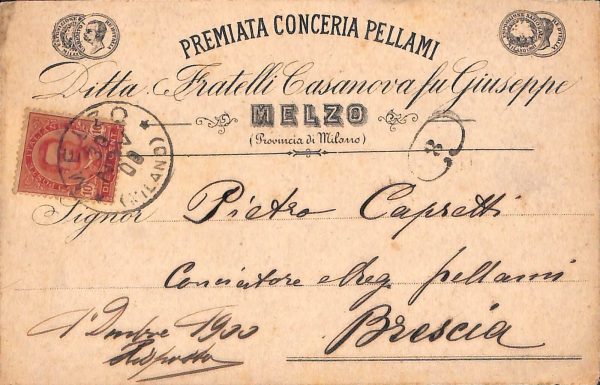 PREMIATA CONCERIA PELLAMI
Ditta Fratelli Casanova fu Giuseppe
MELZO
(Provincia di Milano)
MELZO
(MILANO)
Signor Pietro Capretti
Conciatore e Neg. pellami
Brescia
1° Dmbre 1900
Risposto